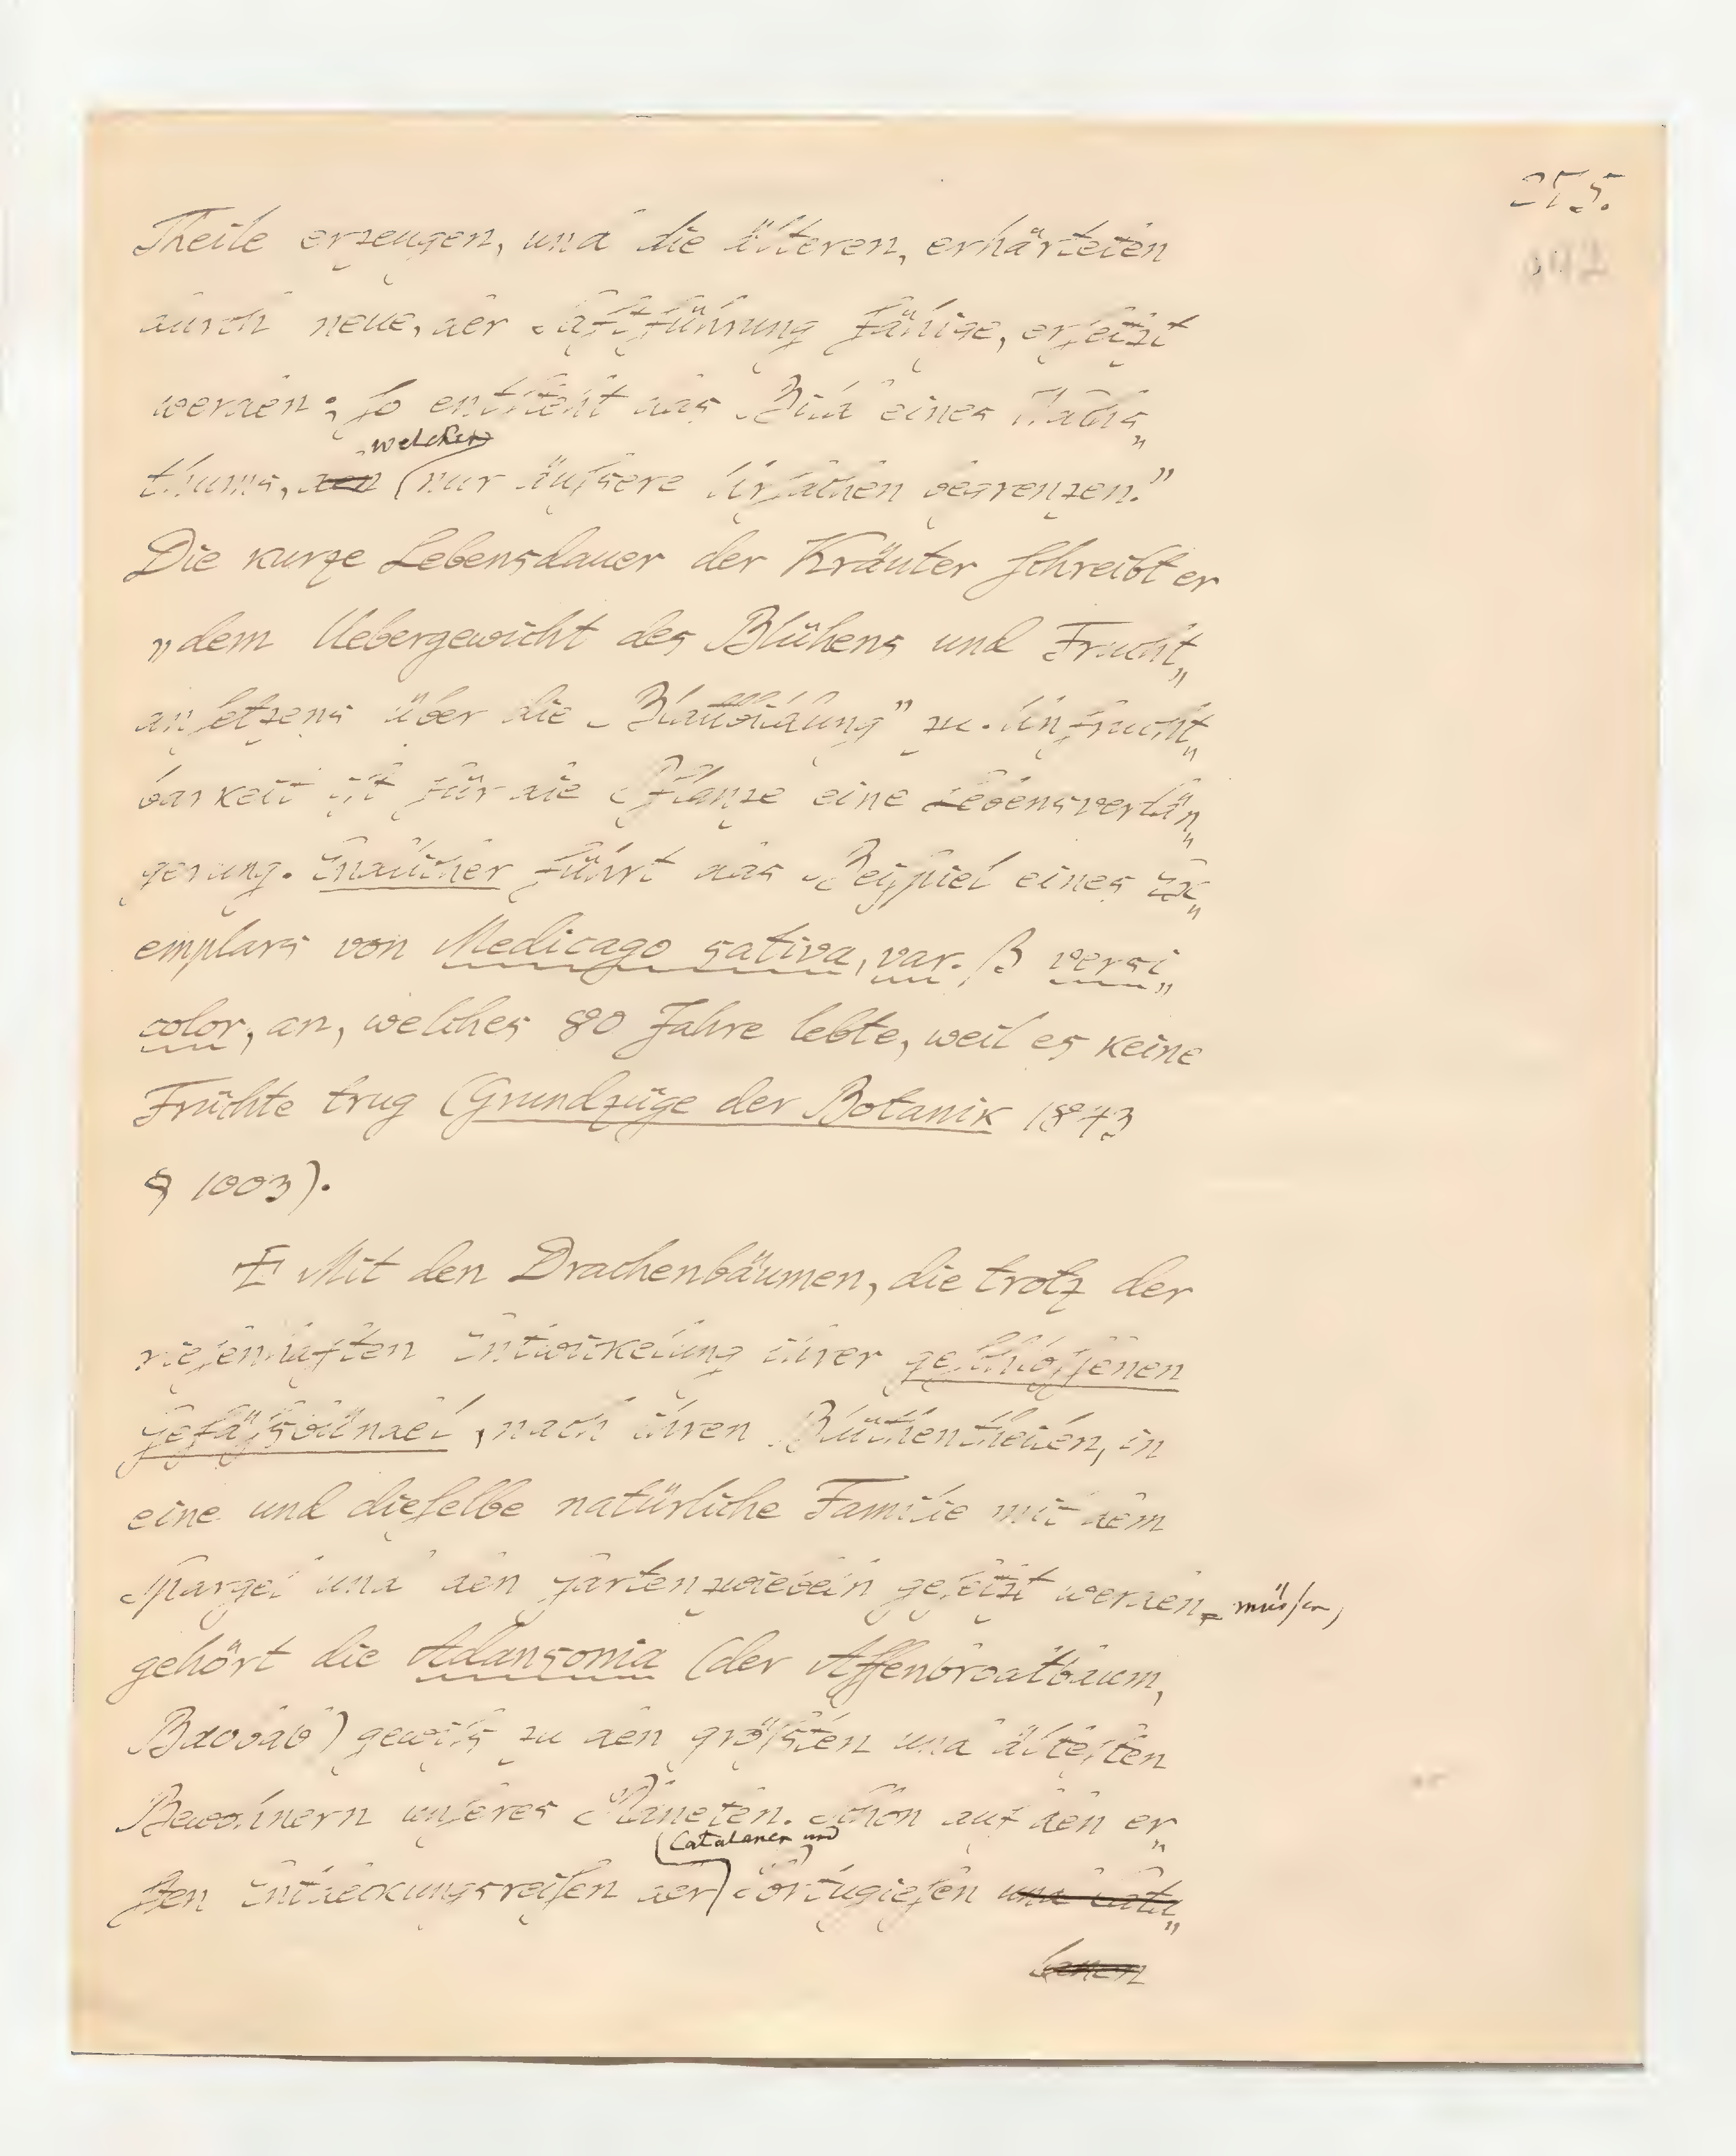 255.
Theile erzeugen, und die älteren, erhärteten
durch neue, der Saftführung fähige, ersetzt
werden; so entsteht das Bild eines Wachs„
welches
thums, den (nur äußere Ursachen begrenzen.”
Die kurze Lebensdauer der Kräuter schreibt er
„dem Uebergewicht des Blühens und Frucht„
ansetzens über die Blattbildung” zu. Unfrucht„
barkeit ist für die Pflanze eine Lebensverlän„
gerung. Endlicher führt das Beispiel eines Ex„
emplars von Medicago sativa, var. β versi„
color, an, welches 80 Jahre lebte, weil es keine
Früchte trug (Grundzüge der Botanik 1843
§ 1003).
Mit den Drachenbäumen, die trotz der
riesenhaften Entwickelung ihrer geschlossenen
Gefäßbündel, nach ihren Blüthentheilen, in
eine und dieselbe natürliche Familie mit dem
Spargel und den Gartenzwiebeln gesetzt werden müssen,
gehört die Adansonia (der Affenbrodtbaum,
Baobab) gewiß zu den größten und ältesten
Bewohnern unseres Planeten. Schon auf den er„
Catalanen und
sten Entdeckungsreisen der Portugiesen und Cata„
lanen